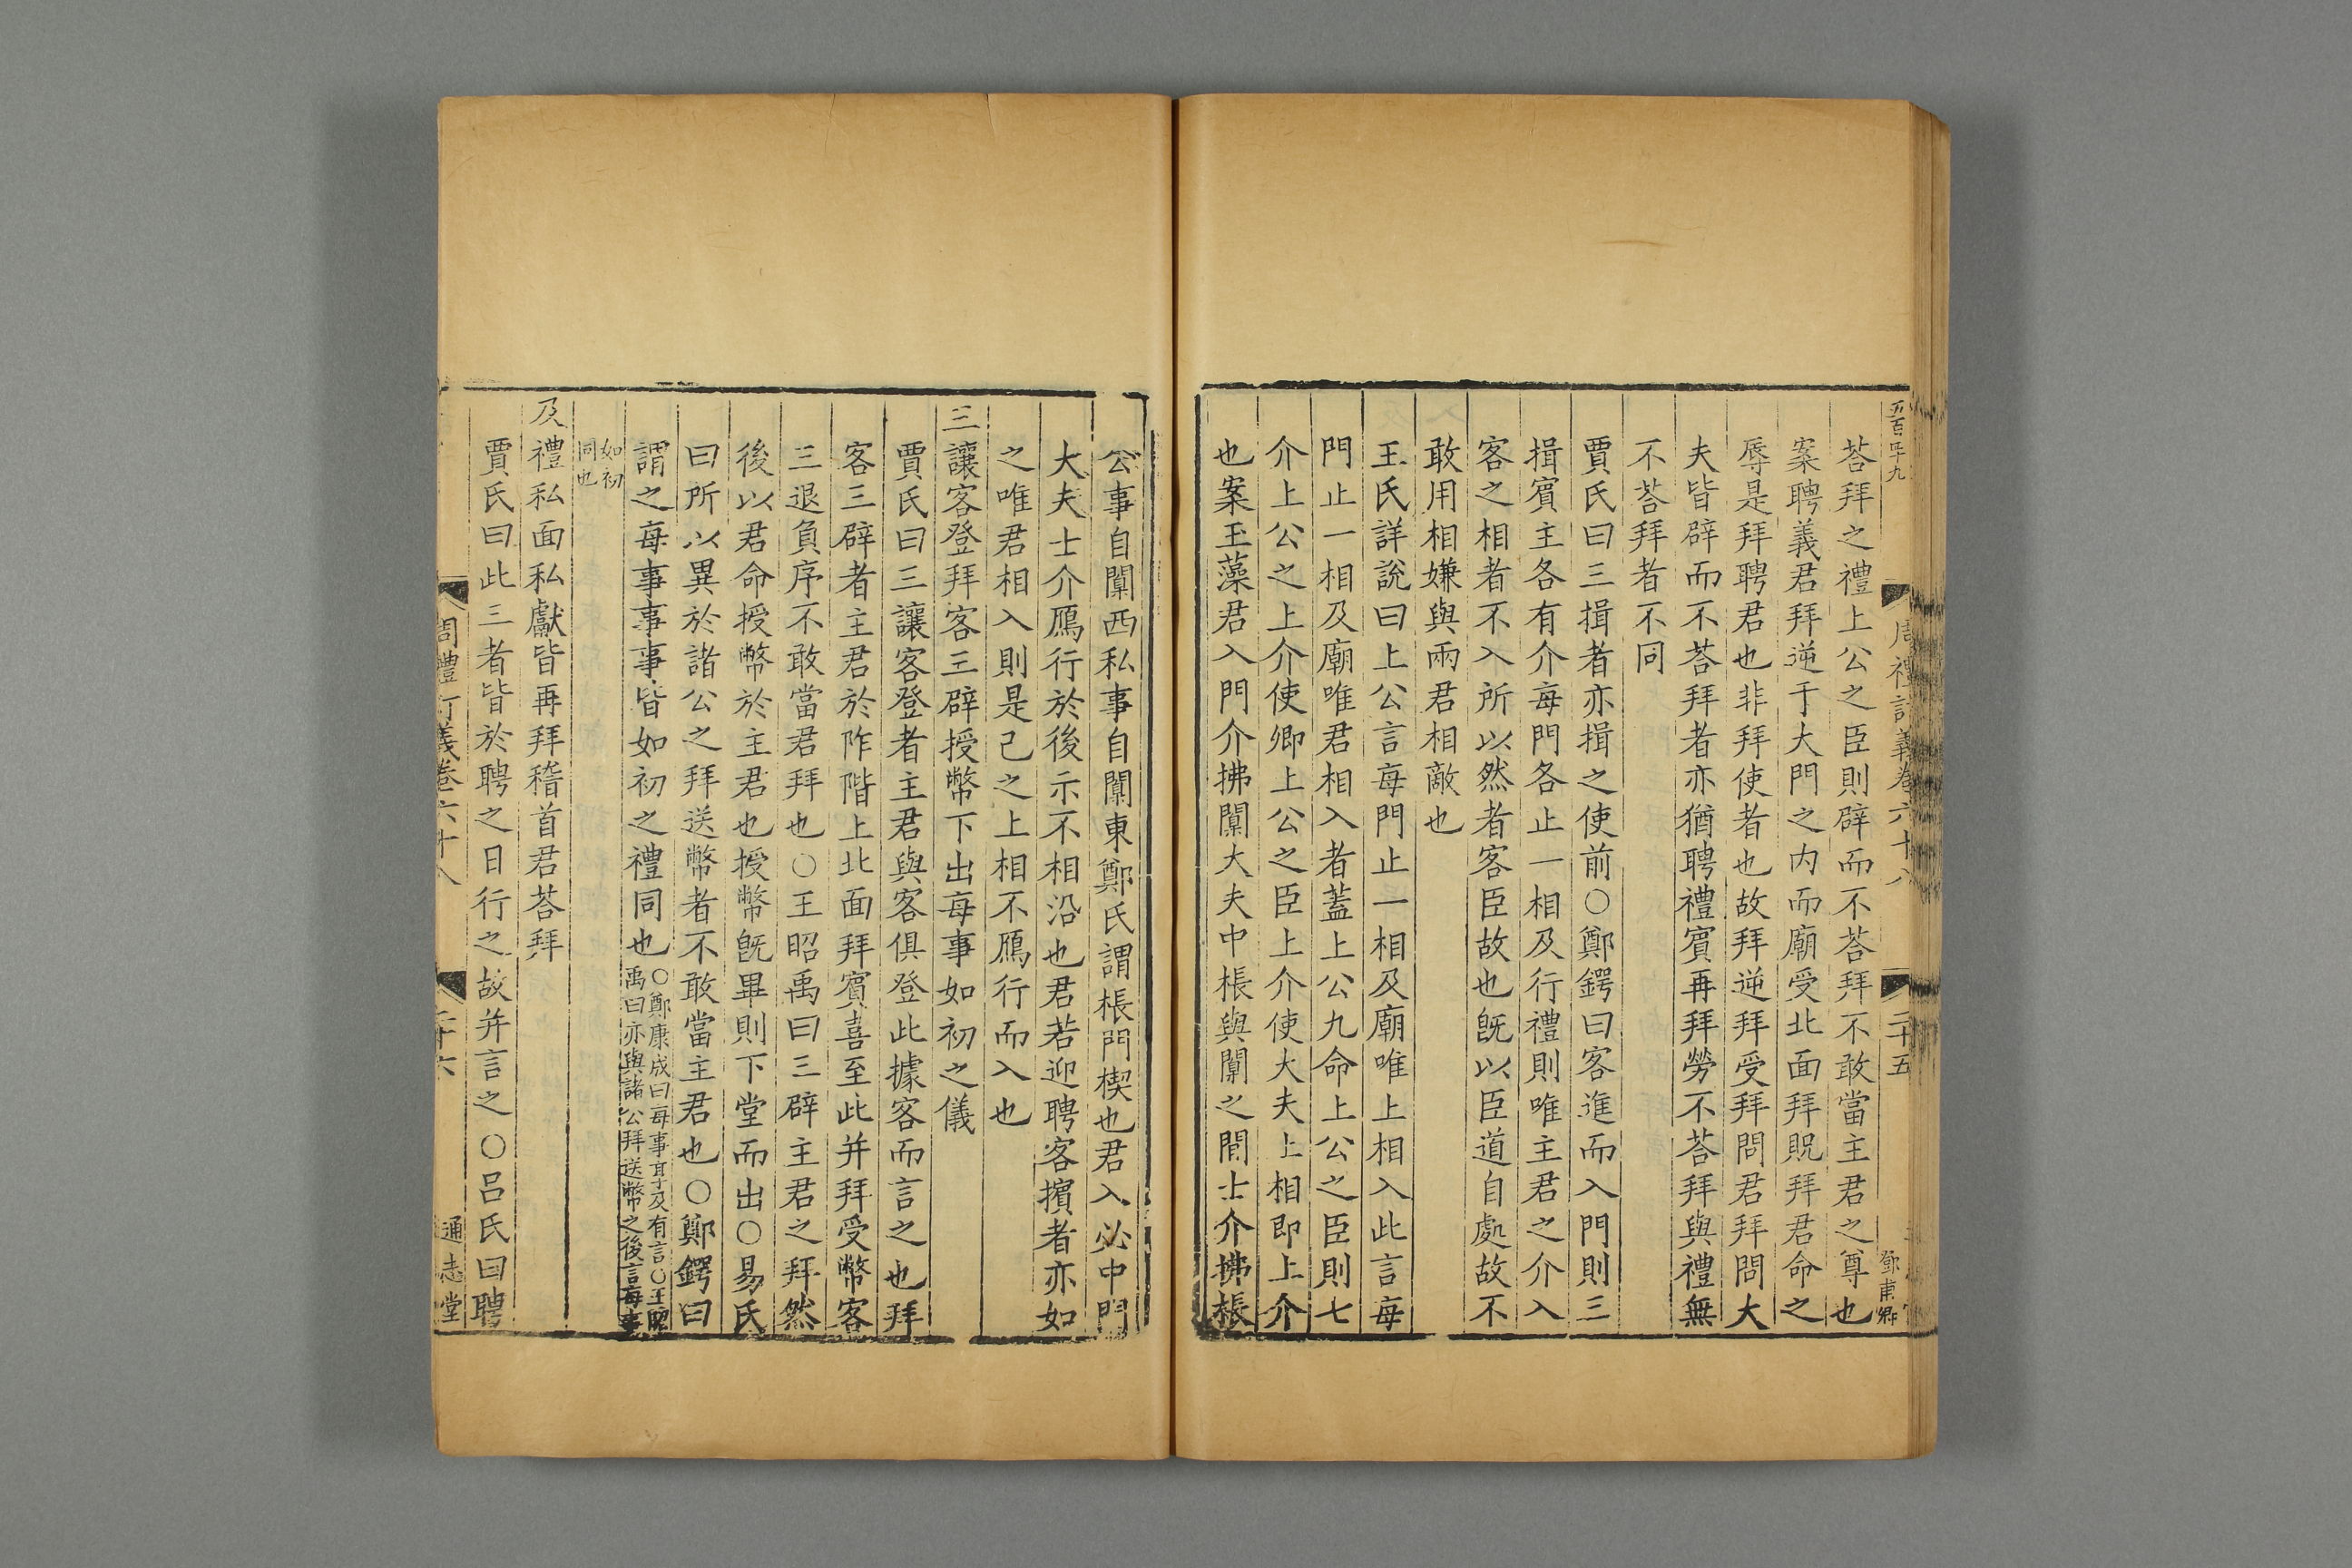 五百四十九
周禮訂義卷六十八
二十五
鄧甫卿
荅拜之禮上公之臣則辟而不荅拜不敢當主君之尊也
案聘義君拜逆于大門之内而廟受北面拜貺拜君命之
辱是拜聘君也非拜使者也故拜逆拜受拜問君拜問大
夫皆辟而不荅拜者亦猶聘禮賓再拜勞不荅拜與禮無
不荅拜者不同
賈氏曰三揖者亦揖之使前○鄭鍔曰客進而入門則三
揖賓主各有介每門各止一相及行禮則唯主君之介入
客之相者不入所以然者客臣故也旣以臣道自處故不
敢用相嫌與兩君相敵也
王氏詳說曰上公言每門止一相及廟唯上相入此言每
門止一相及廟唯君相入者蓋上公九命上公之臣則七
介上公之上介使卿上公之臣上介使大夫上相即上介
也案玉藻君入門介拂闑大夫中棖與闑之間士介拂棖
公事自闑西私事自闑東鄭氏謂棖門楔也君入必中門
大夫士介鴈行於後示不相沿也君若迎聘客擯者亦如
之唯君相入則是己之上相不鴈行而入也
三讓客登拜客三辟授幣下出每事如初之儀
賈氏曰三讓客登者主君與客俱登此據客而言之也拜
客三辟者主君於阼階上北面拜賓喜至此并拜受幣客
三退負序不敢當君拜也○王昭禹曰三辟主君之拜然
後以君命授幣於主君也授幣旣畢則下堂而出○易氏
曰所以異於諸公之拜送幣者不敢當主君也○鄭鍔曰
謂之每事事事皆如初之禮同也○鄭康成曰每事享及有言○王昭
禹曰亦與諸公拜送幣之後言每事
如初
同也
及禮私面私獻皆再拜稽首君荅拜
賈氏曰此三者皆於聘之日行之故并言之○呂氏曰聘
周禮訂義卷六十八
二十六
通志堂